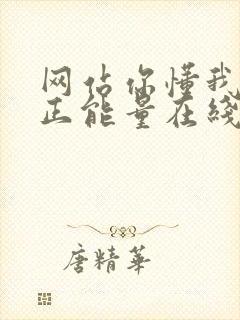 网估你懂我
正能量在线
唐精华